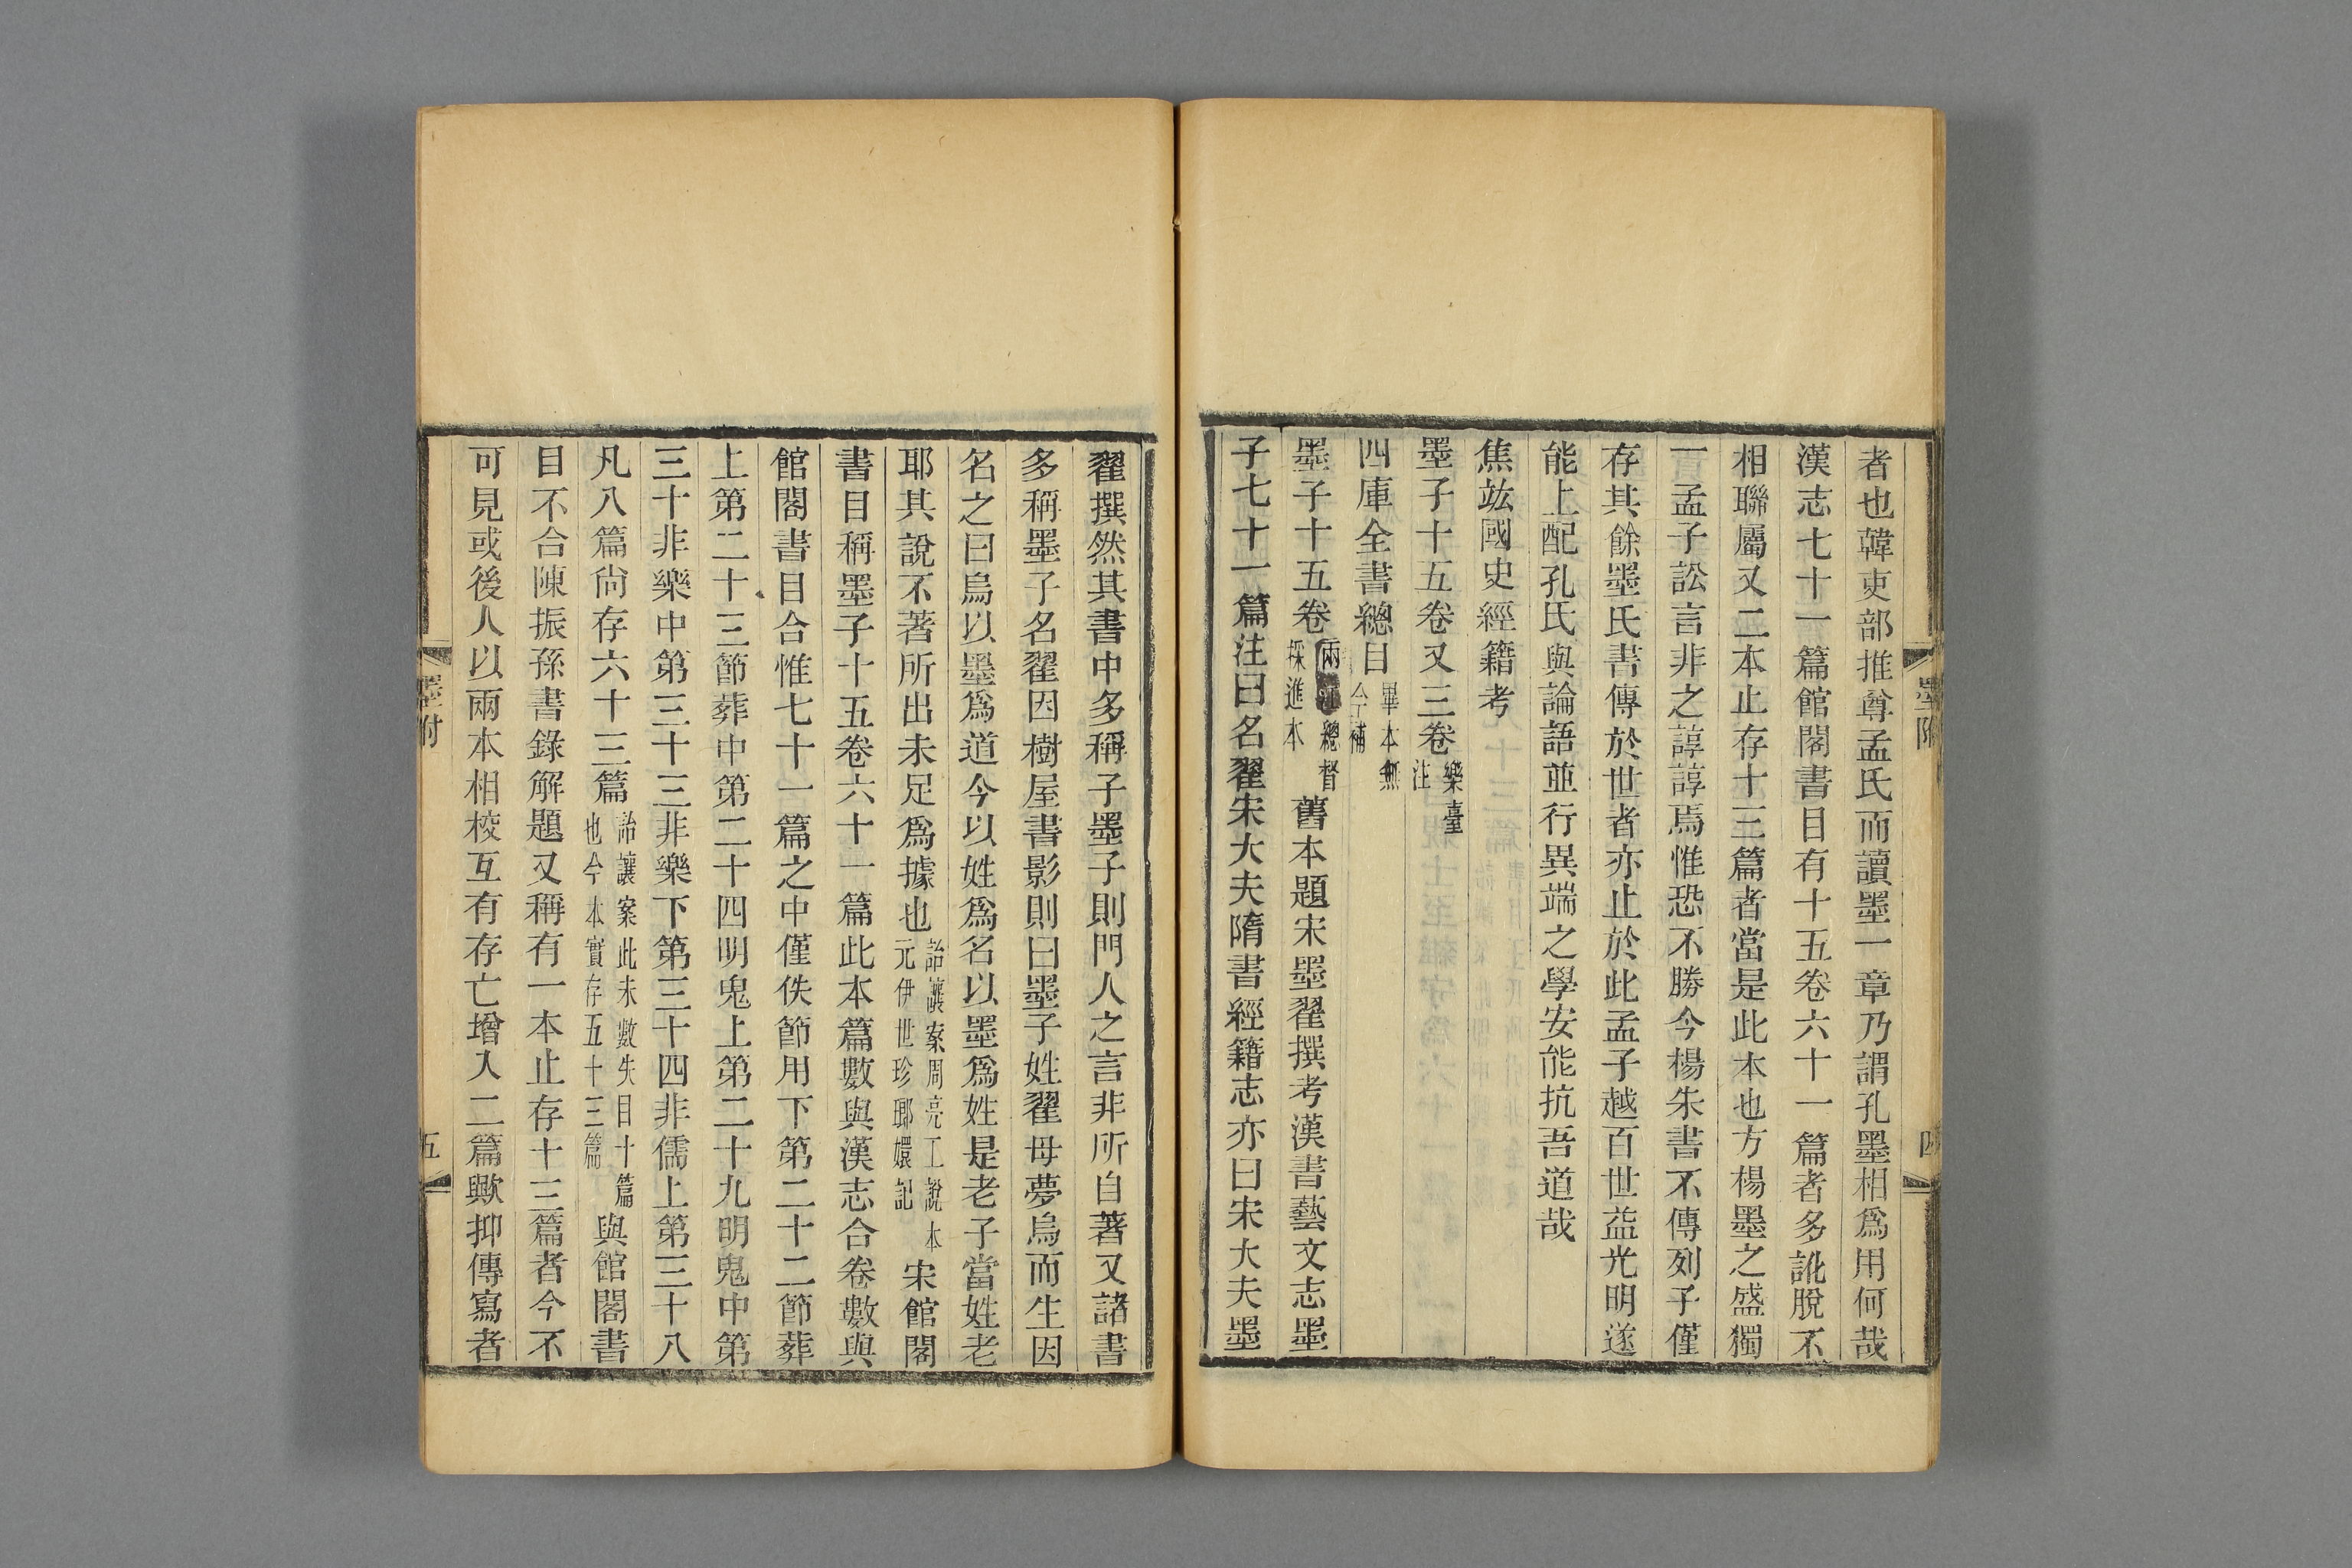 者也韓吏部推尊孟氏而讀墨一章乃謂孔墨相爲用何哉
漢志七十一篇館閣書目有十五卷六十一篇者多訛脫不
相聯屬又二本止存十三篇者當是此本也方楊墨之盛獨
一孟子訟言非之諄諄焉惟恐不勝今楊朱書不傳列子僅
存其餘墨氏書傳於世者亦止於此孟子越百世益光明遂
能上配孔氏與論語並行異端之學安能抗吾道哉
焦竑國史經籍考
墨子十五卷又三卷樂臺注
四庫全書總目畢本無今補
墨子十五卷兩江總督採進本舊本題宋墨翟撰考漢書藝文志墨
子七十一篇注曰名翟宋大夫隋書經籍志亦曰宋大夫墨
墨附
四
翟撰然其書中多稱子墨子則門人之言非所自著又諸書
多稱墨子名翟因樹屋書影則曰墨子姓翟母夢烏而生因
名之曰烏以墨爲道今以姓爲名以墨爲姓是老子當姓老
耶其說不著所出未足爲據也詒讓案周亮工說本元伊世珍瑯嬛記宋館閣
書目稱墨子十五卷六十一篇此本篇數與漢志合卷數與
館閣書目合惟七十一篇之中僅佚節用下第二十二節葬
上第二十三節葬中第二十四明鬼上第二十九明鬼中第
三十非樂中第三十三非樂下第三十四非儒上第三十八
凡八篇尙存六十三篇詒讓案此未數失目十篇也今本實存五十三篇與館閣書
目不合陳振孫書錄解題又稱有一本止存十三篇者今不
可見或後人以兩本相校互有存亡增入二篇歟抑傳寫者
墨附
五